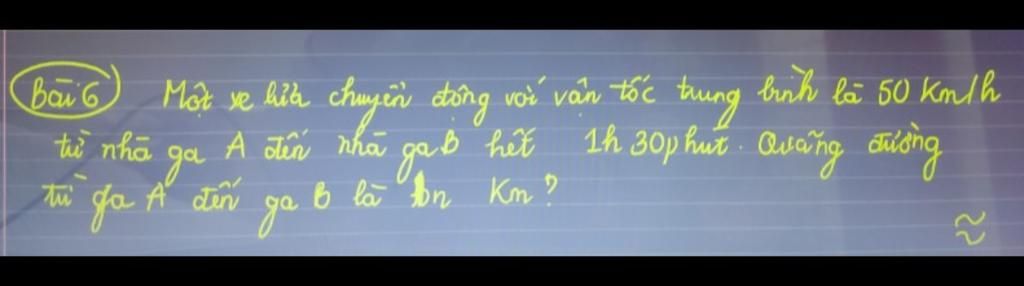 Bài 6 Một xe lửa chuyển động với vận tốc trung bình là 50 Km/h
từ nhà ga A đến nhà ga B hết 1h 30phút. Quãng đường
từ ga A đến ga B là bn Km?